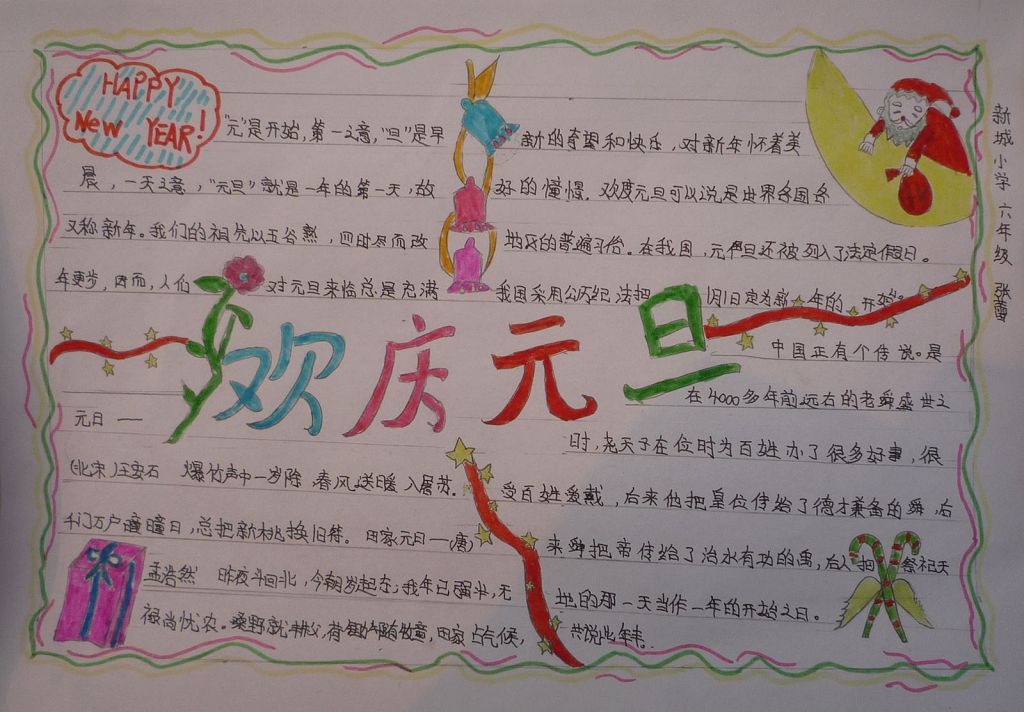 HAPPY
New YEAR!
"元"是开始,第一之意,"旦"是早
晨,一天之意,"元旦"就是一年的第一天,故
又称新年。我们的祖先以五谷熟,四时尽而改
年更岁,因而,人们
对元旦来临总是充满
新的希望和快乐,对新年怀着美
好的憧憬。欢度元旦可以说是世界各国各
地区的普遍习俗。在我国,元旦还被列入了法定假日。
我国采用公历纪法把
1月1日定为新年的一开始。
欢庆元旦
元日 —
(北宋)王安石 爆竹声中一岁除,春风送暖入屠苏。
千门万户曈曈日,总把新桃换旧符。 田家元日—(唐)
孟浩然 昨夜斗回北,今朝岁起东;我年已强壮,无
禄尚忧农。桑野就耕父,荷锄随牧童,田家占气候,
共说此年丰。
中国正有个传说。是
在4000多年前远古的老舜盛世之
时,尧天子在位时为百姓办了很多好事,很
受百姓爱戴,后来他把皇位传给了德才兼备的舜,后
来舜把帝传给了治水有功的禹,后人把祭祀天
地的那一天当作一年的开始之日。
新城小学 六年级 张蕾